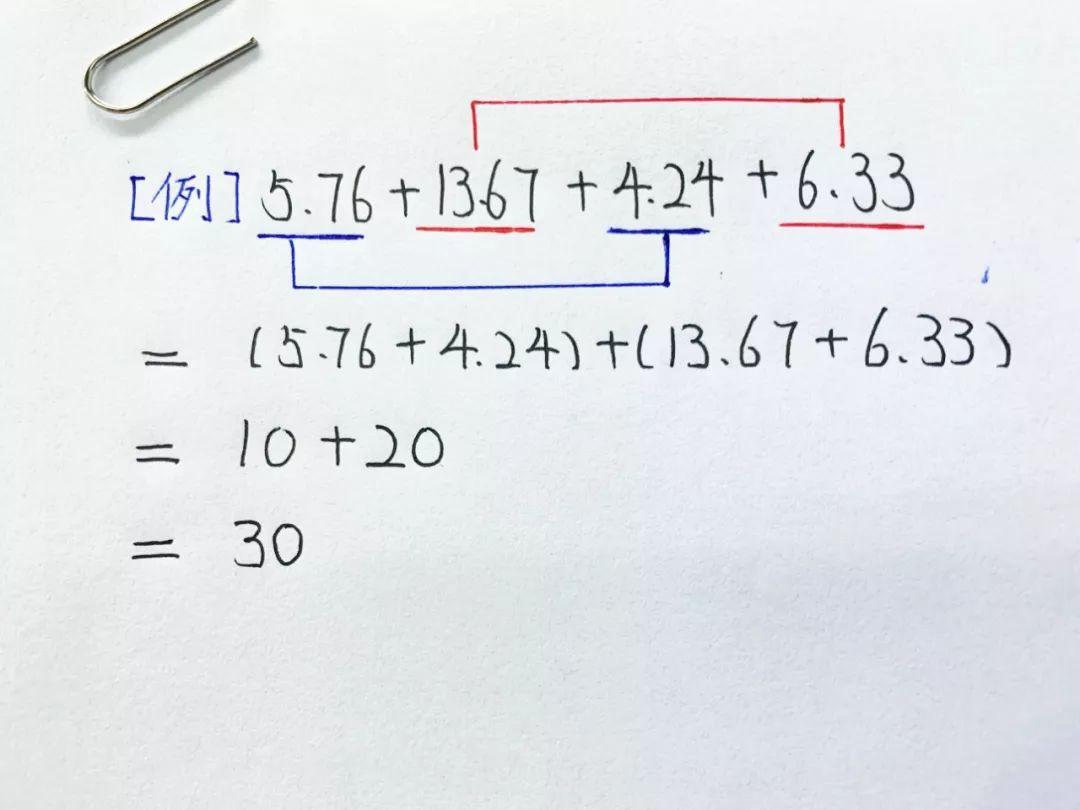 [例] 5.76 + 13.67 + 4.24 + 6.33
= (5.76 + 4.24) + (13.67 + 6.33)
= 10 + 20
= 30